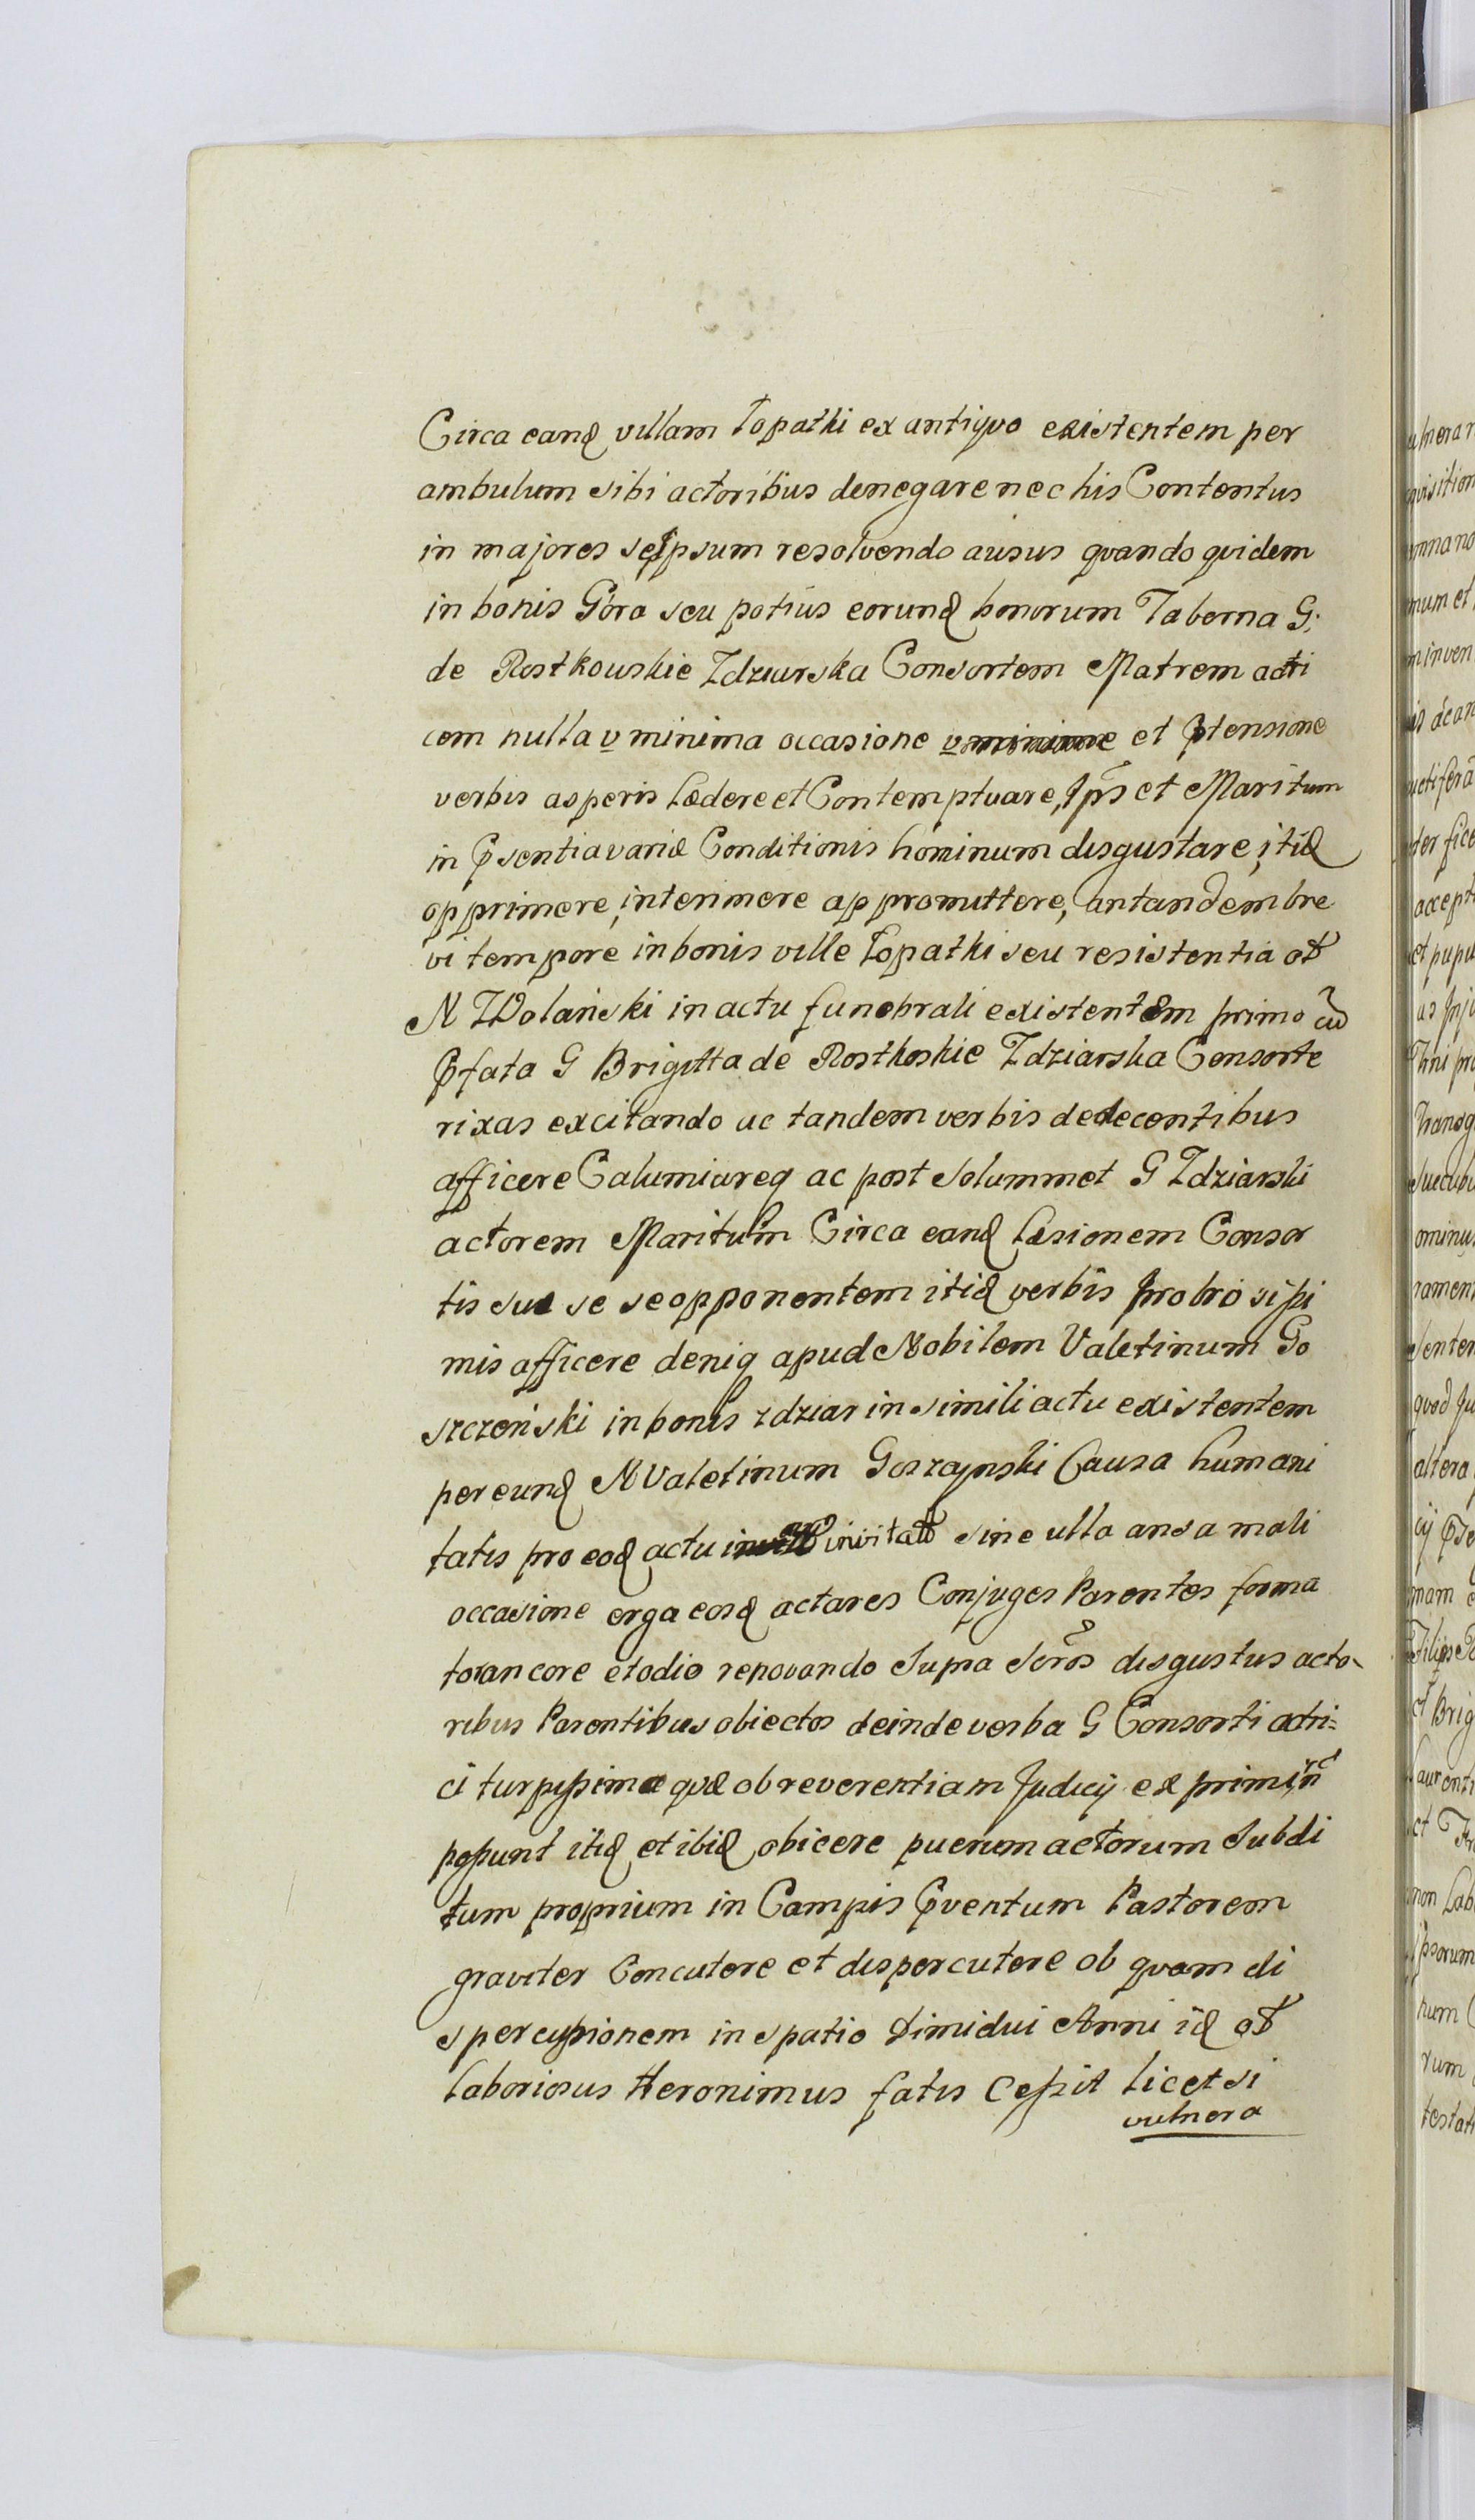 Circa eand villam Łopatki ex antiqvo existentem per
ambulum sibi actoribus denegare nec his Contentus
in majores seIpsum resolvendo ausus qvando qvidem
in bonis Góra seu potius eorund bonorum Taberna G:
de Rostkowskie Zdziarska Consortem Matrem actri
cem nulla v minima occasione et Ptensione
verbis asperis lædere et Contemptuare, Ips et Maritum
in Psentia variæ Conditionis hominum disgustare, itid
opprimere, interimere appromittere, antandem bre
vi tempore in bonis ville Łopatki seu resistentia ol
N Wolański in actu funebrali existentem primo cu
Pfata G Brigitta de Rostkoskie Zdziarska Consorte
rixas excitando ac tandem verbis dedecentibus
afficere Calumiareq ac post Solummet G Zdziarski
actorem Maritum Circa eand Læsionem Consor
tis suæ se se opponentem itid verbis probrosissi
mis afficere deniq apud Nobilem Valetinum Go
szczeński in bonis zdziar in simili actu existentem
per eund N Valetinum Goszczynski Causa humani
tatis pro eod actu invitatt sine ulla ansa mali
occasione erga eosd actores Conjuges Parentes forma
to rancore et odio renovando Supra Scros disgustus acto
ribus Parentibus obiectos deinde verba G Consorti actri=
ci turpissima qvæ ob reverentiam Judicij ex primin
possunt itid et ibid obicere puerum actorum Subdi
tum proprium in Campis Pventum Pastorem
graviter Concutere et dispercutere ob qvam di
spercussionem in spatio dimidui Anni id ol
laboriosus Heronimus fatis Cessit licet si
vulnera